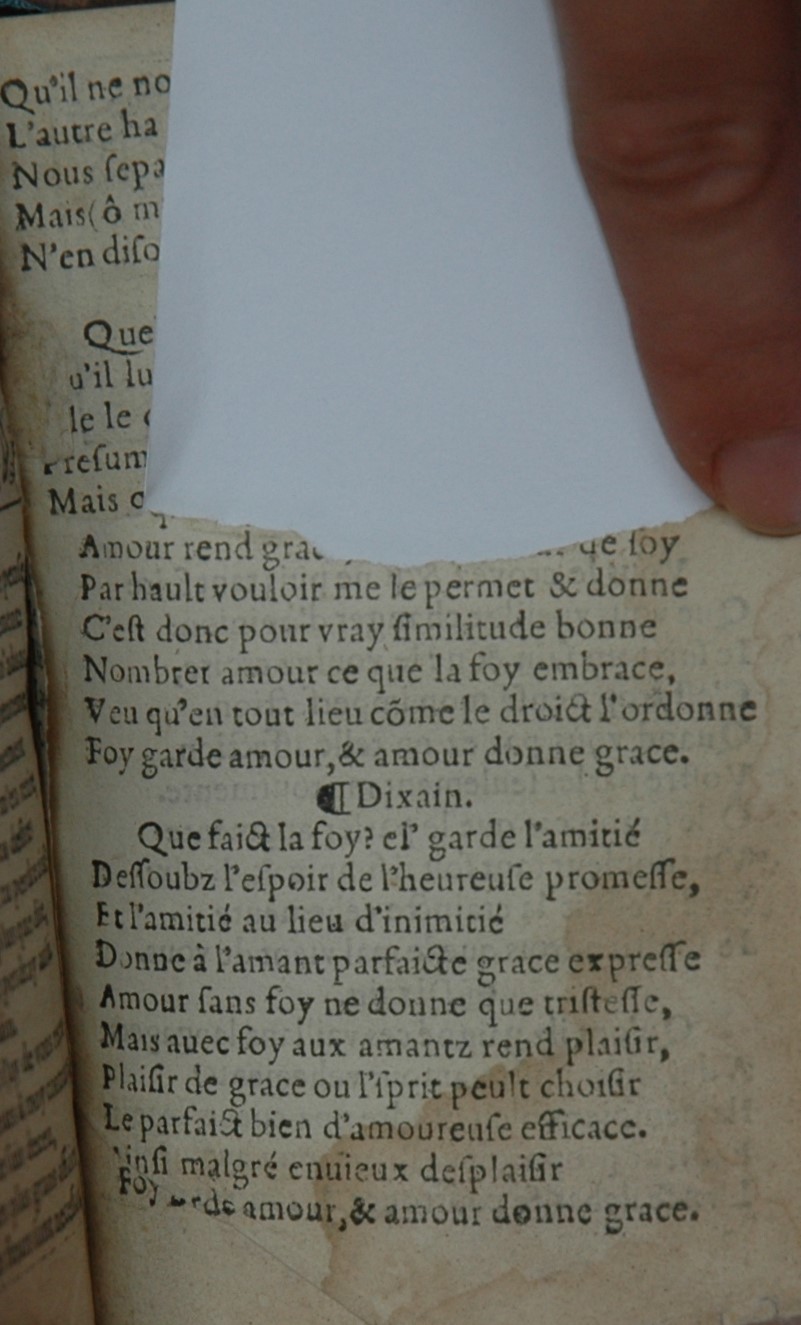 Qu'il ne no
L'autre ha
Nous ſepa
Mais (ô m
N'en diſo
Que
u'il lu
le le
reſum
Mais
Amour rend gra de ſoy
Par hault vouloir me le permet & donne
C'eſt donc pour vray ſimilitude bonne
Nombrer amour ce que la foy embrace,
Veu qu'en tout lieu cõme le droict l'ordonne
Foy garde amour, & amour donne grace.
¶ Dixain.
Que faict la foy? el' garde l'amitié
Deſſoubz l'eſpoir de l'heureuſe promeſſe,
Et l'amitié au lieu d'inimitié
Donne à l'amant parfaicte grace expreſſe
Amour ſans foy ne donne que triſteſſe,
Mais auec foy aux amantz rend plaiſir,
Plaiſir de grace ou l'iſprit peult choiſir
Le parfaict bien d'amoureuſe efficace.
inſi malgré enuieux deſplaiſir
Foy rde amour, & amour donne grace.